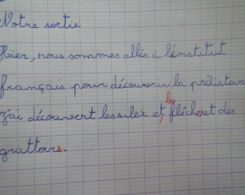 Notre sortie
Hier, nous sommes allés à l'institut
français pour découvrir la préhistoire
J'ai découvert les silex et, les flèches et des
grattoirs.